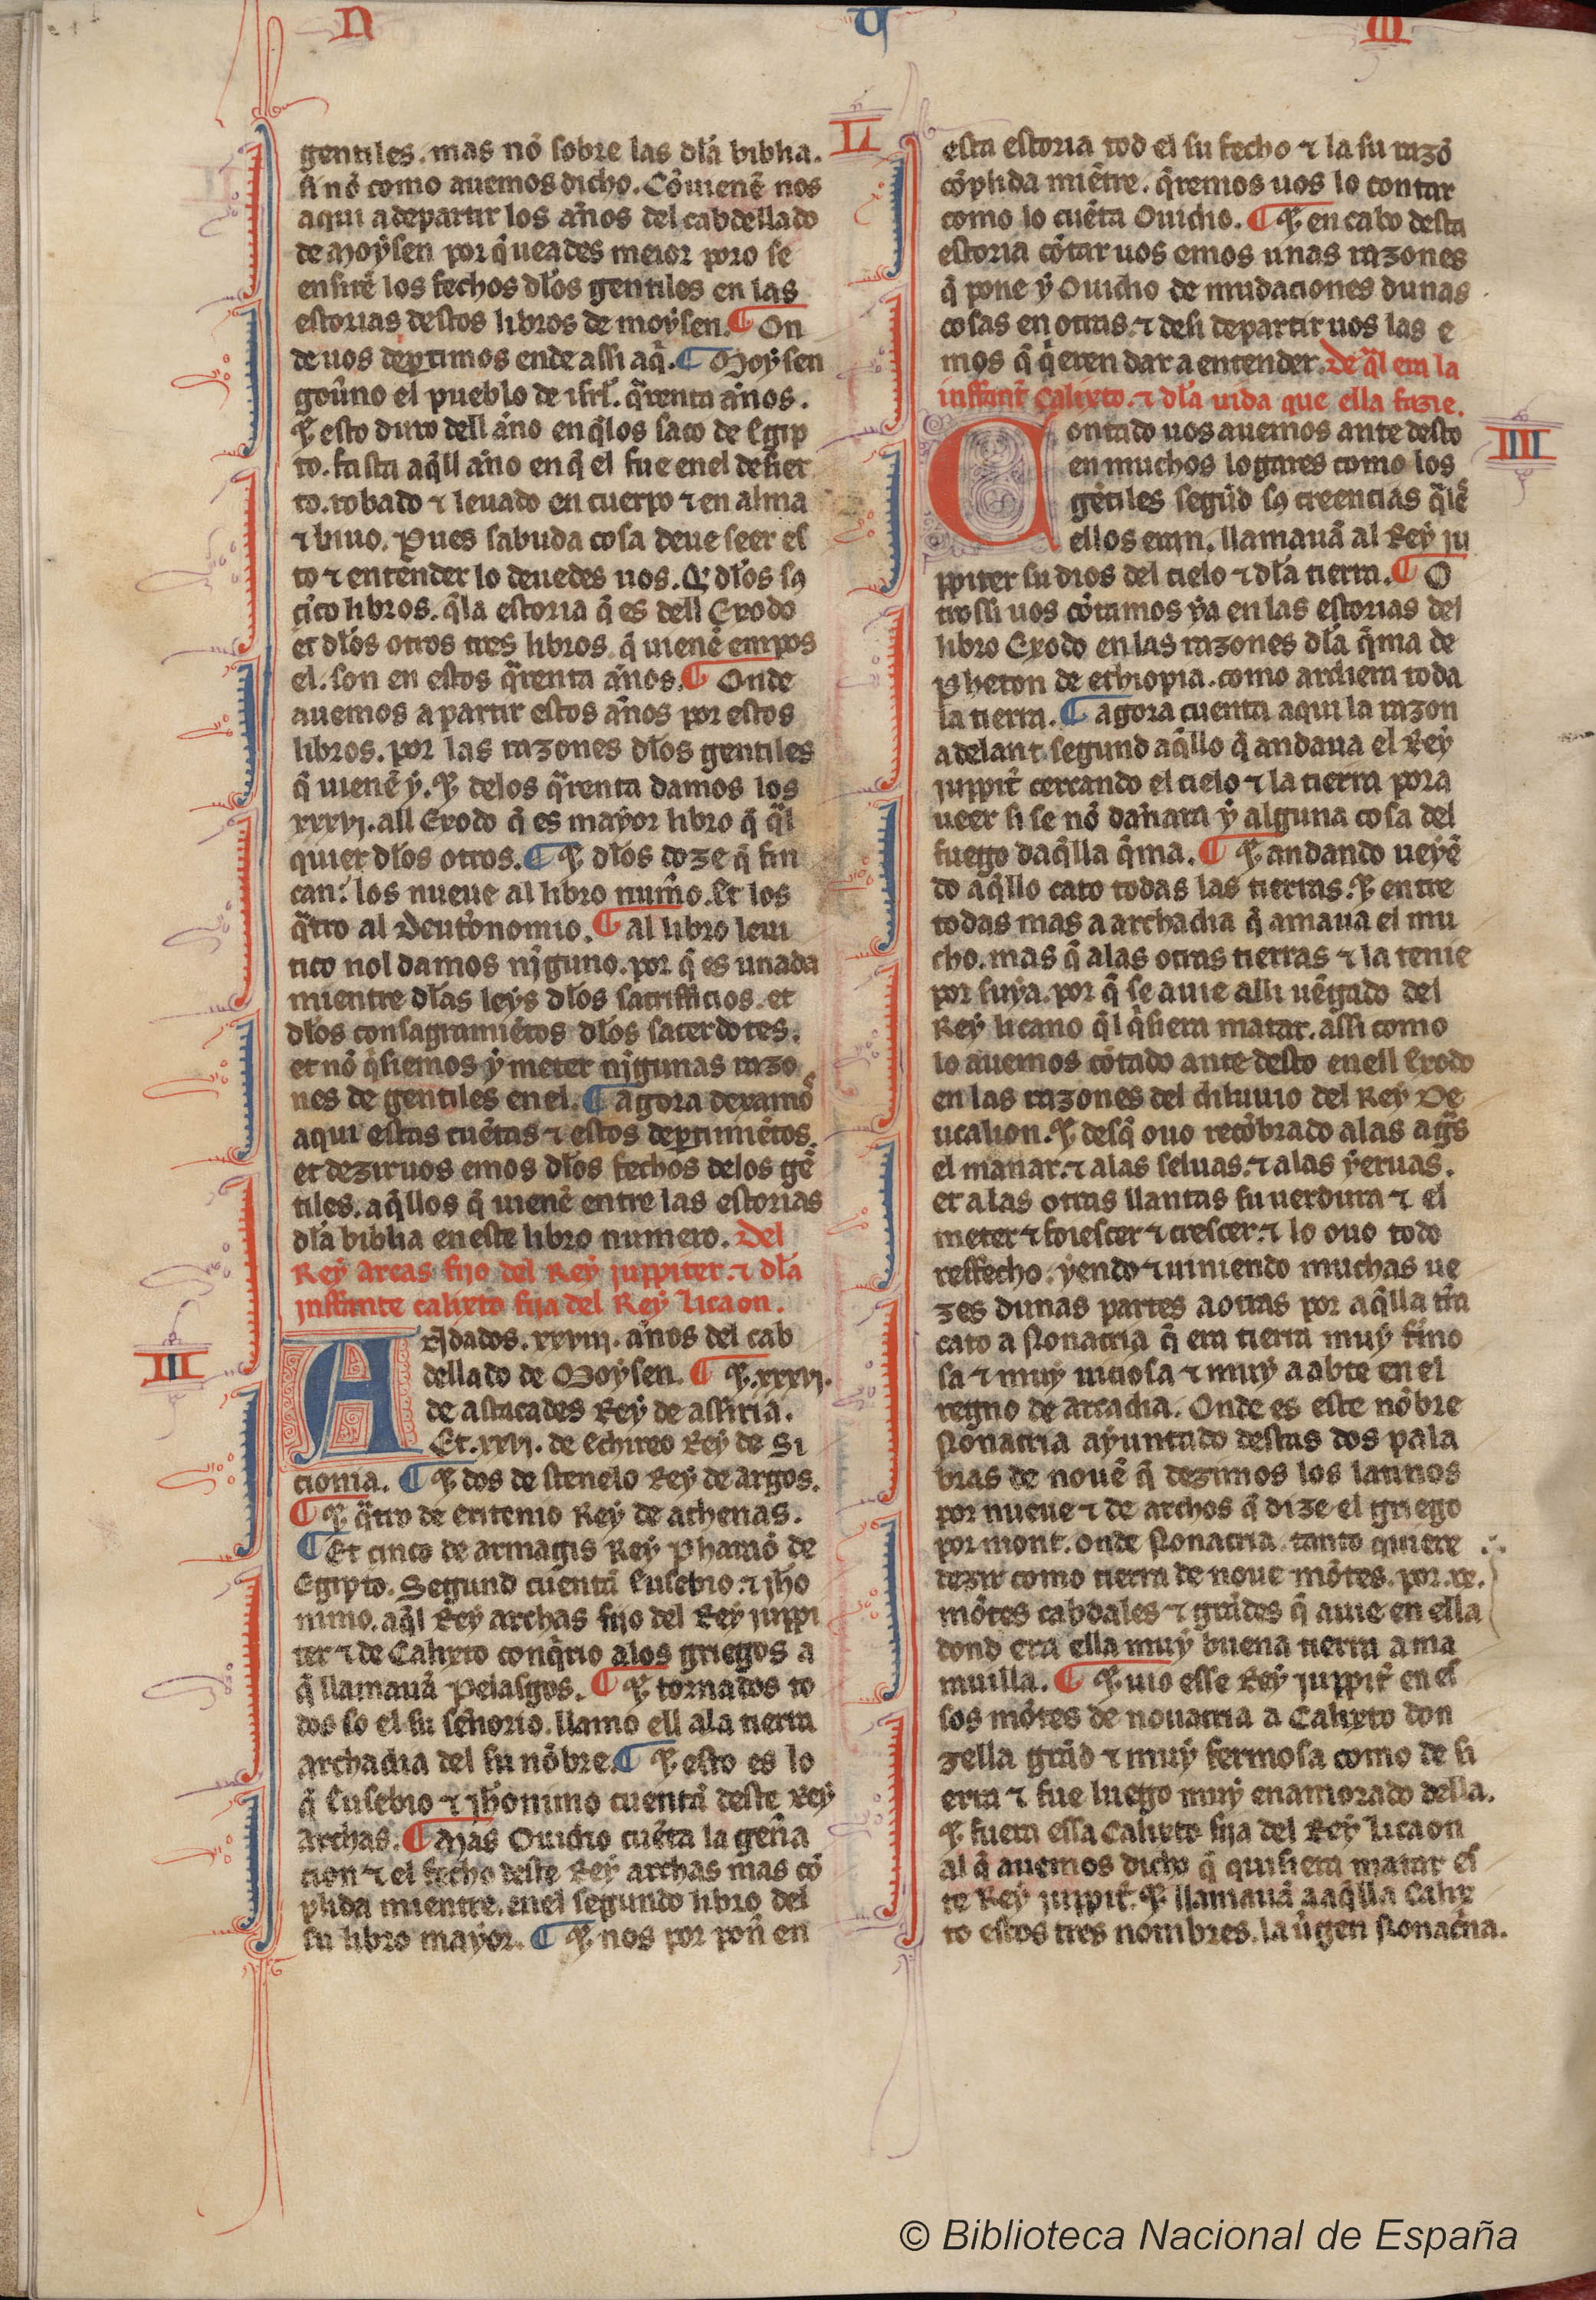 N U M
gentiles. mas nõ sobre las dła biblia.
si nõ como auemos dicho. Cõuienẽ nos
aqui a departir los años del cabdellado
de Moysen por q̃ ueades meior poro se
ensirẽ los fechos dłos gentiles en las
estorias destos libros de moysen. ¶ On
de uos deꝑtimos ende assi aq̃. ¶ Moysen
gou̾no el pueblo de isrł. q̃renta años.
⁊ esto duro dell año en q̃ los saco de Egip
to. fasta aq̃ll año en q̃ el fue en el desier
to. robado ⁊ leuado en cuerpo ⁊ en alma
⁊ biuo. Pues sabuda cosa deue seer es
to ⁊ entender lo deuedes uos. Q̃ dłos sꝯ
çĩco libros. q̃ la estoria q̃ es dell Exodo
et dłos otros tres libros q̃ uienẽ empos
el. son en estos q̃renta años. ¶ Onde
auemos a partir estos años por estos
libros. por las razones dłos gentiles
q̃ uienẽ y. ⁊ delos q̃renta damos los
xxxvj. all Exodo q̃ es mayor libro q̃ q̃l
quier dłos otros. ¶ ⁊ dłos doze q̃ fin
can. los nueue al libro num̾o. Et los
q̃tro al Deut̾onomio. ¶ al libro leui
tico nol damos nĩguno. por q̃ es unada
mientre dłas leys dłos sacrifficios. et
dłos consagramiẽtos dłos sacerdotes.
et nõ q̃siemos y meter nĩgunas razo
nes de gentiles en el. ¶ agora dexamõs
aqui estas cuẽtas ⁊ estos deꝑtimiẽtos.
et deziruos emos dłos fechos delos gẽ
tiles. aq̃llos q̃ uienẽ entre las estorias
dła biblia en este libro numero. Del
Rey Arcas fijo del Rey juppiter. ⁊ dła
jnffante calixto fija del Rey Licaon.
III
Andados. xxviij. años del cab
dellado de Moysen. ¶ ⁊. xxxvj.
de astacades Rey de assiria.
Et. xxvj. de Echireo Rey de Si
cionia. ¶ ⁊ dos de stenelo Rey de argos.
¶ ⁊ q̃tro de eritenio Rey de athenas.
¶ Et cinco de armagis Rey Pharaõ de
Egipto. Segund cuentã Eusebio. ⁊ jħo
nimo. aq̃l Rey archas fijo del Rey juppi
ter ⁊ de Calixto conq̃rio alos griegos a
q̃ llamauã Pelasgos. ¶ ⁊ tornados to
dos so el su señorio. llamo ell ala tierra
archadia del su nõbre. ¶ ⁊ esto es lo
q̃ Eusebio ⁊ jħonimo cuentã deste Rey
archas. ¶ Mas Ouidio cuẽta la geñra
cion ⁊ el fecho deste Rey archas mas cõ
plida mientre. en el segundo libro del
su libro mayor. ¶ ⁊ nos por poñ en
II
esta estoria tod el su fecho ⁊ la su razõ
cõplida miẽtre. q̃remos uos lo contar
como lo cuẽta Ouidio. ¶ ⁊ en cabo desta
estoria cõtar uos emos unas razones
q̃ pone y Ouidio de mudaciones dunas
cosas en otras. ⁊ desi departir uos las e
mos q̃ q̃eren dar a entender. De q̃l era la
inffant̃ Calixto. ⁊ dła uida que ella fazie.
IIII
Contado uos auemos ante desto
en muchos logares como los
gẽtiles segũd sꝯ creencias q̃les
ellos eran. llamauã al Rey ju
ppiter su dios del cielo ⁊ dła tierra. ¶ O
trossi uos cõtamos ya en las estorias del
libro Exodo en las razones dła q̃ma de
Pheton de ethiopia. como ardiera toda
la tierra. ¶ agora cuenta aqui la razon
adelant. segund aq̃llo q̃ andaua el Rey
juppit̃ cercando el cielo ⁊ la tierra pora
ueer si se nõ dañara y alguna cosa del
fuego daq̃lla q̃ma. ¶ ⁊ andando ueyẽ
do aq̃llo cato todas las tierras. ⁊ entre
todas mas a archadia q̃ amaua el mu
cho. mas q̃ alas otras tierras ⁊ la tenie
por suya. por q̃ se auie alli uẽgado del
Rey licano q̃l q̃siera matar. assi como
lo auemos cõtado ante desto en ell Exodo
en las razones del diluuio del Rey De
ucalion. ⁊ desq̃ ouo recõbrado alas agᷓs
el manar. ⁊ alas seluas. ⁊ alas yeruas.
et alas otras llantas su uerdura ⁊ el
meter ⁊ florescer ⁊ crescer. ⁊ lo ouo todo
reffecho. yendo ⁊ uiniendo muchas ue
zes dunas partes a otras por aq̃lla tr̃ra
cato a Nonacria q̃ era tierra muy fermo
sa ⁊ muy uiciosa ⁊ muy aabte en el
regno de arcadia. Onde es este nõbre
Nonacria ayuntado destas dos pala
bras de nouẽ q̃ dezimos los latinos
por nueue ⁊ de archos q̃ dize el griego
por mont. onde Nonacria tanto quiere
dezir como tierra de noue mõtes. por. ix.
mõtes cabdales ⁊ grãdes q̃ auie en ella
dond era ella muy buena tierra a ma
rauilla. ¶ ⁊ uio esse Rey juppit̃ en es
sos mõtes de nonacria a Calixto don
zella grãd ⁊ muy fermosa como de si
era ⁊ fue luego muy enamorado della.
⁊ fuera essa Calixto fija del Rey Licaon
al q̃ auemos dicho q̃ quisiera matar es
te Rey juppit̃. ⁊ llamauã a aq̃lla Calix
to estos tres nombres. la uirgen Nonacria.
© Biblioteca Nacional de España